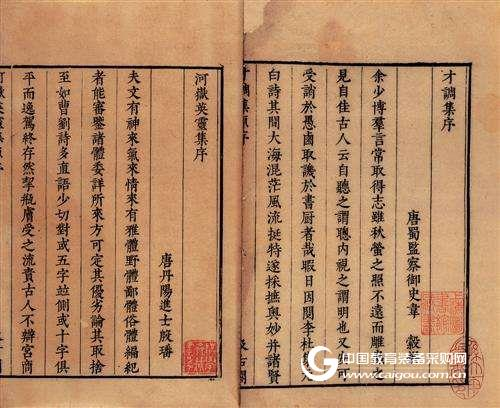 才調集序
唐蜀監察御史韋縠
余少博羣言常取得志雖秋螢之照不遠而雕之
見自佳古人云自聽之謂聰內視之謂明也又可
受誚於愚鹵取譏於書厨者哉暇日因閱李杜
白詩其間大海混茫風流挺特遂採摭奥妙并諸賢
汲古閣
河嶽英靈集序
唐丹陽進士殷璠
夫文有神來氣來情來有雅體野體鄙體俗體編紀
者能審鑒諸體委詳所來方可定其優劣論其取捨
至如曹劉詩多直語少切對或五字並側或十字俱
平而逸駕終存然挈瓶膚受之流責古人不辯宮商
中国教育装备采购网
www.caigou.com.cn